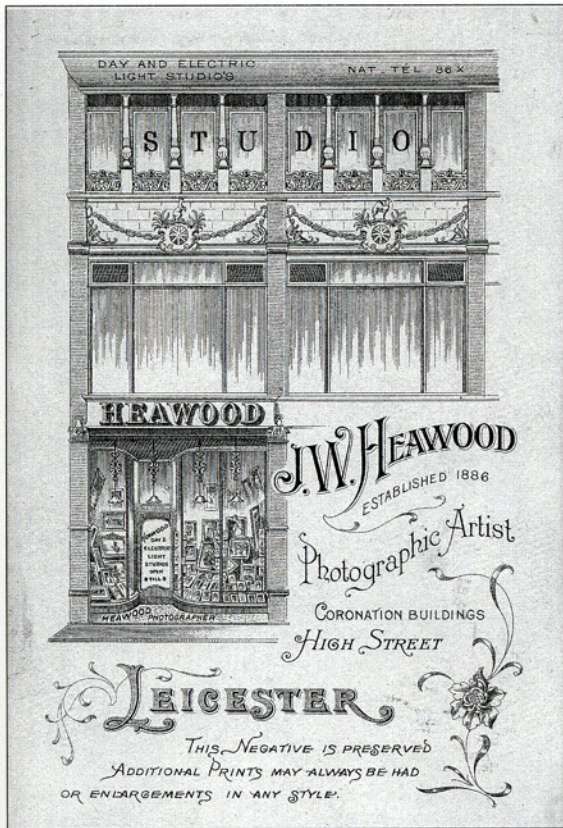 DAY AND ELECTRIC
LIGHT STUDIO'S
NAT. TEL 86X
STUDIO
HEAWOOD
HEAWOOD
DAY &
ELECTRIC
LIGHT
STUDIOS
OPEN
TILL 8
HEAWOOD PHOTOGRAPHER
J.W. HEAWOOD
ESTABLISHED 1886
Photographic Artist
CORONATION BUILDINGS
HIGH STREET
LEICESTER
THIS NEGATIVE IS PRESERVED
ADDITIONAL PRINTS MAY ALWAYS BE HAD
OR ENLARGEMENTS IN ANY STYLE.